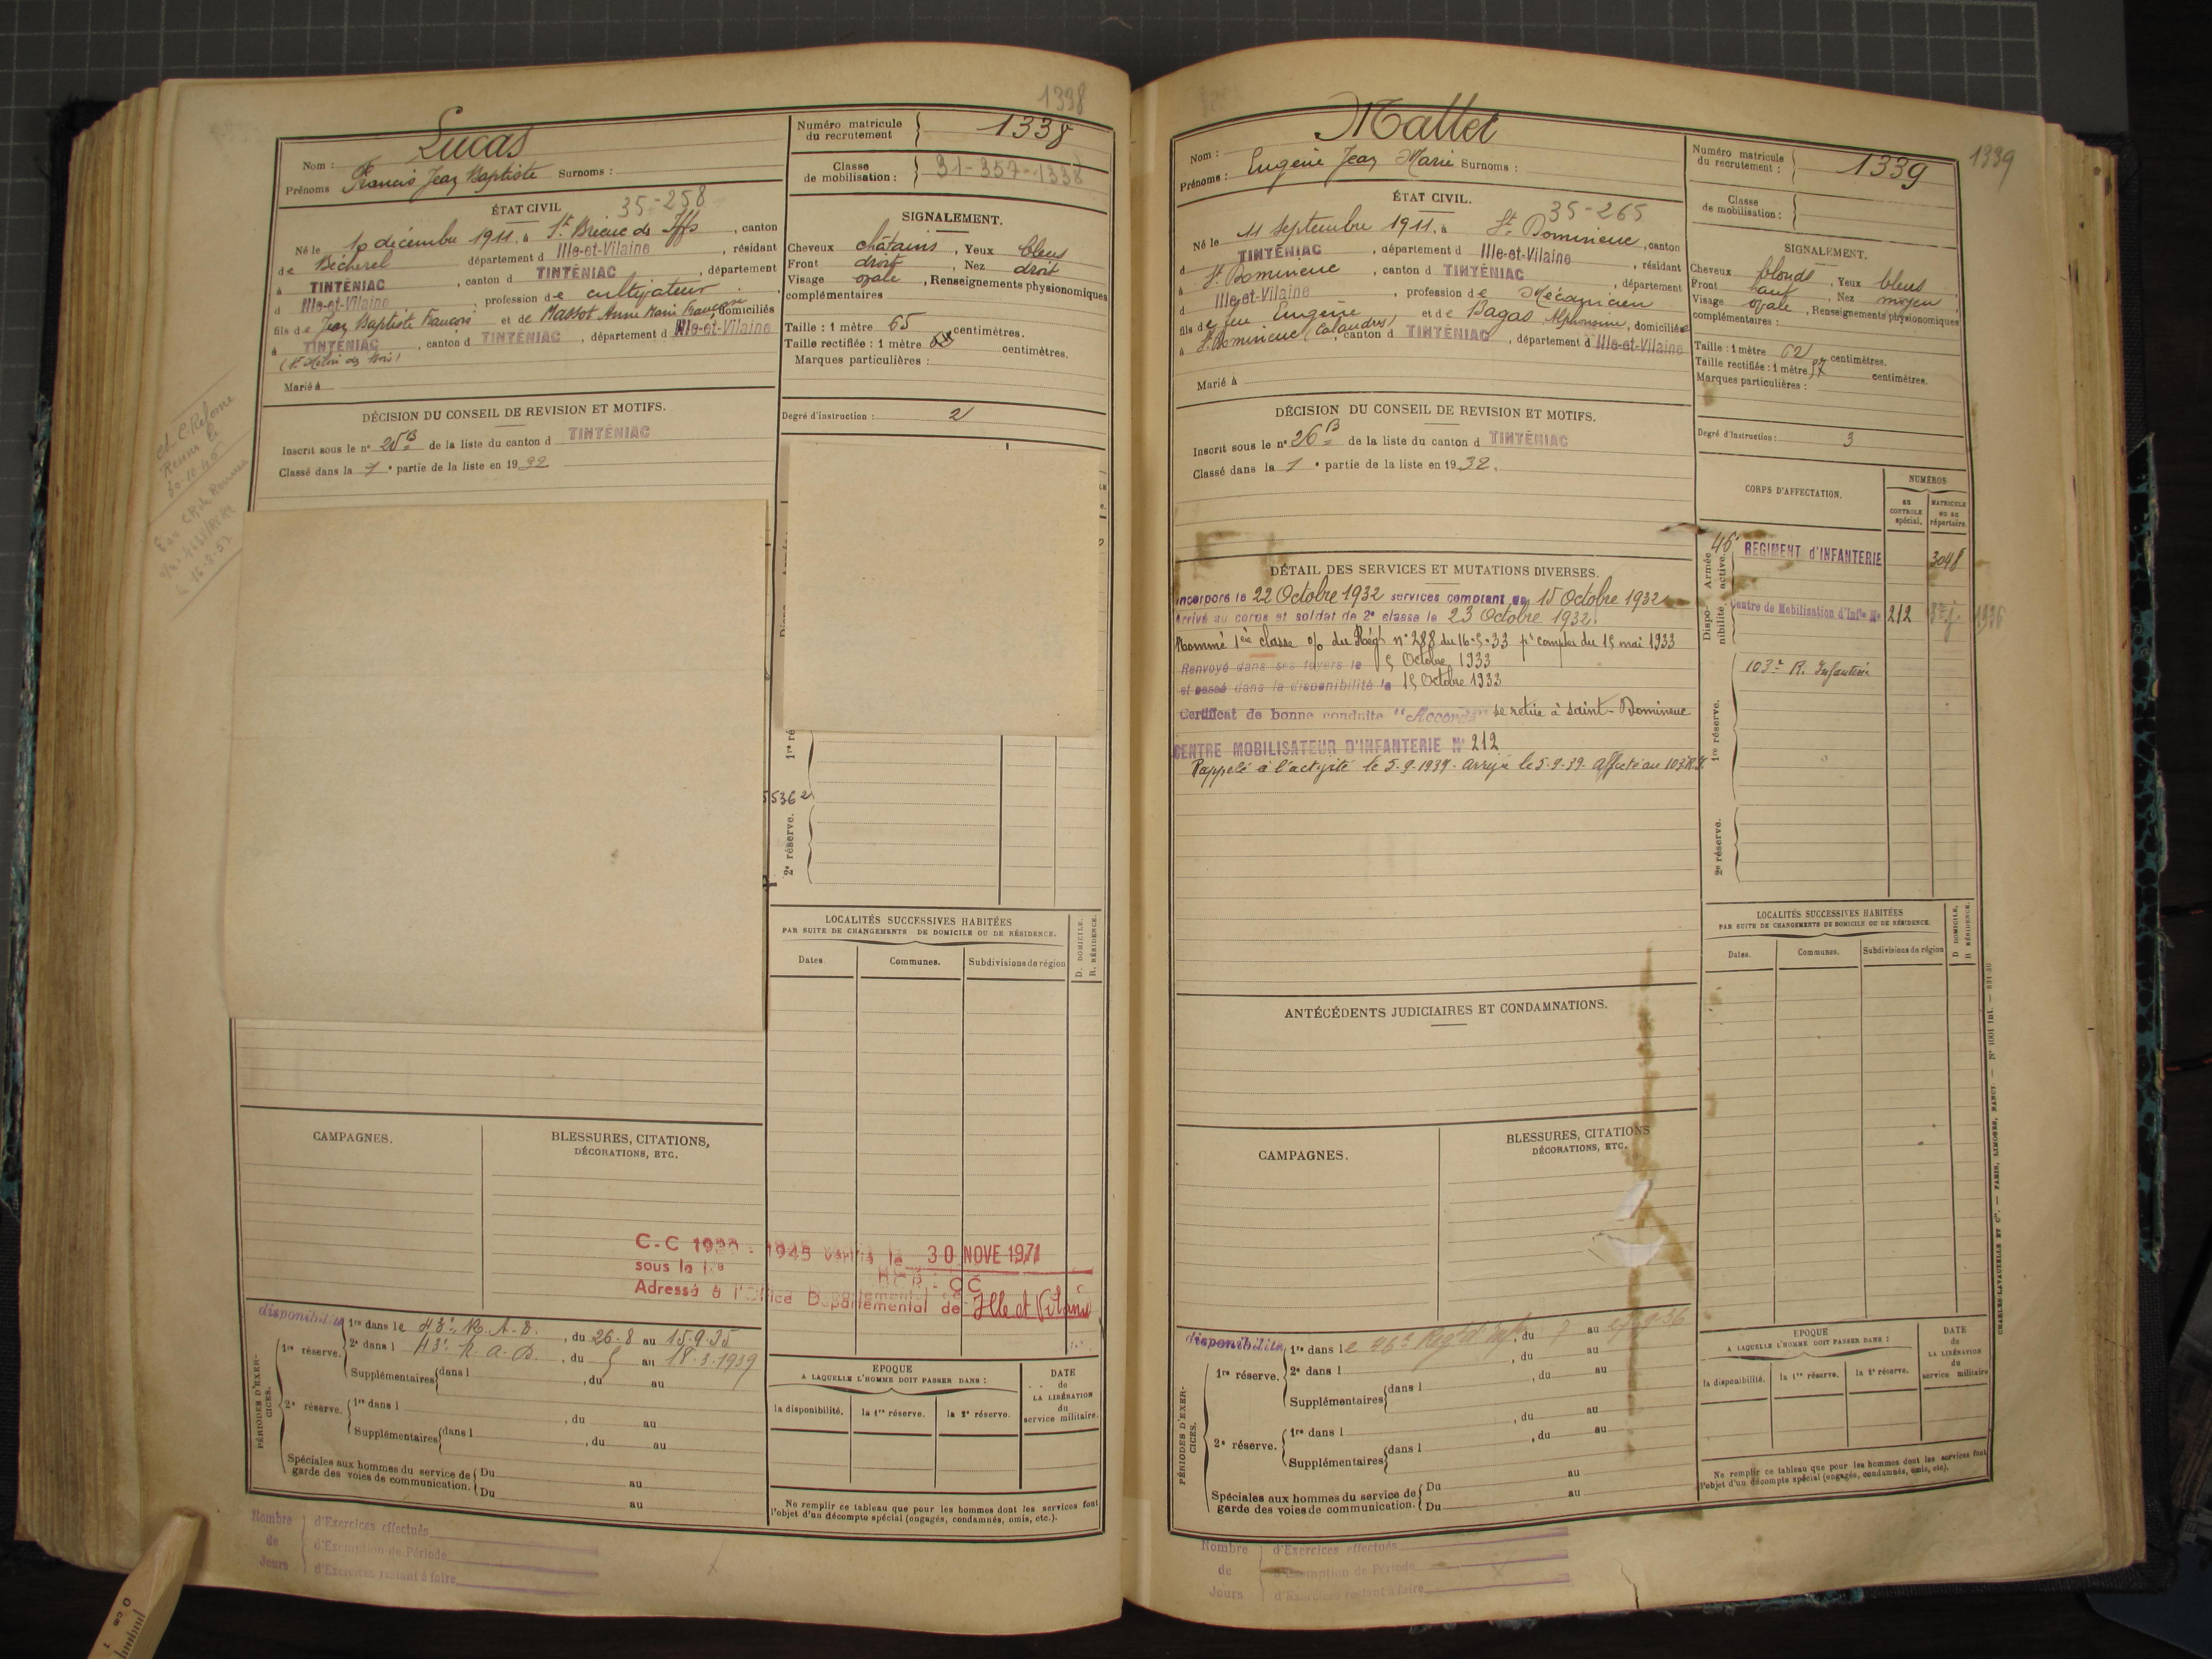 1338
Nom : Lucas
Prénoms Francis Jean Baptiste Surnoms :
Numéro matricule du recrutement 1338
Classe de mobilisation : 31-357-1338
ÉTAT CIVIL 35-258
Né le 10 décembre 1911, à St Brieuc des Iffs, canton
de Bécherel département d Ille-et-Vilaine, résidant
à TINTÉNIAC, canton d TINTÉNIAC, département
d Ille-et-Vilaine, profession de cultivateur
fils de Jean Baptiste François et de Massot Anne Marie Françoise, domiciliés
à TINTÉNIAC, canton d TINTÉNIAC, département d Ille-et-Vilaine
Marié à
SIGNALEMENT.
Cheveux châtains, Yeux bleus
Front droit, Nez droit
Visage ovale, Renseignements physionomiques
complémentaires
Taille : 1 mètre 65 centimètres.
Taille rectifiée : 1 mètre 68 centimètres.
Marques particulières :
Degré d'instruction : 2
DÉCISION DU CONSEIL DE REVISION ET MOTIFS.
Inscrit sous le n° 25 B de la liste du canton d TINTÉNIAC
Classé dans la 1e partie de la liste en 19
30-10-46
16-8-52
1re ré
55362
2e réserve.
LOCALITÉS SUCCESSIVES HABITÉES
PAR SUITE DE CHANGEMENTS DE DOMICILE OU DE RÉSIDENCE.
D. DOMICILE.
R. RÉSIDENCE.
Dates. Communes. Subdivisions de région
CAMPAGNES.
BLESSURES, CITATIONS,
DÉCORATIONS, ETC.
C-C 1939-1945 vérifié le 30 NOVE 1971
sous le No
Adressé à l'Office Départemental de Ille et Vilaine
PÉRIODES D'EXERCICES.
disponibilité 1re dans le 43e R.A.D., du 26-8 au 15-9-35
1re réserve. 2e dans l 43e R.A.D., du 5 au 18-3-1939
Supplémentaires dans l , du au
2e réserve. 1re dans l , du au
Supplémentaires dans l , du au
Spéciales aux hommes du service de garde des voies de communication. Du au
Du au
EPOQUE
A LAQUELLE L'HOMME DOIT PASSER DANS :
la disponibilité. la 1re réserve. la 2e réserve.
DATE de LA LIBÉRATION du service militaire.
Ne remplir ce tableau que pour les hommes dont les services font
l'objet d'un décompte spécial (engagés, condamnés, omis, etc.).
Nombre de Jours
d'Exercices effectués
d'Exemption de Période
d'Exercices restant à faire
1339
Nom : Mallet
Prénoms : Eugène Jean Marie Surnoms :
Numéro matricule du recrutement : 1339
Classe de mobilisation :
ÉTAT CIVIL. 35-265
Né le 11 Septembre 1911, à St Domineuc, canton
d TINTÉNIAC, département d Ille-et-Vilaine, résidant
à St Domineuc, canton d TINTÉNIAC, département
d Ille-et-Vilaine, profession de Mécanicien
fils de feu Eugène et de Bagas Alphonsine, domiciliés
à St Domineuc (Calaudris), canton d TINTÉNIAC, département d Ille-et-Vilaine
Marié à
SIGNALEMENT.
Cheveux blonds, Yeux bleus
Front haut, Nez moyen
Visage ovale, Renseignements physionomiques
complémentaires :
Taille : 1 mètre 62 centimètres.
Taille rectifiée : 1 mètre 57 centimètres.
Marques particulières :
Degré d'instruction : 3
DÉCISION DU CONSEIL DE REVISION ET MOTIFS.
Inscrit sous le n° 26 B de la liste du canton d TINTÉNIAC
Classé dans la 1e partie de la liste en 1932.
CORPS D'AFFECTATION.
NUMÉROS
AU CONTROLE spécial. MATRICULE ou au répertoire.
Armée active. 46e REGIMENT d'INFANTERIE 3048
Disponibilité. Centre de Mobilisation d'Inf'ie N° 212
1re réserve. 103e R. Infanterie
2e réserve.
DÉTAIL DES SERVICES ET MUTATIONS DIVERSES.
Incorporé le 22 Octobre 1932 services comptant du 15 Octobre 1932
Arrivé au corps et soldat de 2e classe le 23 Octobre 1932.
Nommé 1ère classe o/o du Régt n° 288 du 16-5-33 pr compter du 15 mai 1933
Renvoyé dans ses foyers le 5 Octobre 1933
et passé dans la disponibilité le 15 Octobre 1933
Certificat de bonne conduite "Accordé" se retire à Saint-Domineuc
CENTRE MOBILISATEUR D'INFANTERIE N° 212
Rappelé à l'activité le 5-9-1939. Arrivé le 5-9-39. Affecté au 103e R.I.
LOCALITÉS SUCCESSIVES HABITÉES
PAR SUITE DE CHANGEMENTS DE DOMICILE OU DE RÉSIDENCE.
D DOMICILE.
R RÉSIDENCE.
Dates. Communes. Subdivisions de région
ANTÉCÉDENTS JUDICIAIRES ET CONDAMNATIONS.
CAMPAGNES.
BLESSURES, CITATIONS
DÉCORATIONS, ETC.
PÉRIODES D'EXERCICES.
disponibilité 1re dans le 46e Régt d'Inf, du 7 au 27-9-36
1re réserve. 2e dans l , du au
Supplémentaires dans l , du au
2e réserve. 1re dans l , du au
Supplémentaires dans l , du au
Spéciales aux hommes du service de garde des voies de communication. Du au
Du au
EPOQUE
A LAQUELLE L'HOMME DOIT PASSER DANS :
la disponibilité. la 1re réserve. la 2e réserve.
DATE de LA LIBÉRATION du service militaire
Ne remplir ce tableau que pour les hommes dont les services font
l'objet d'un décompte spécial (engagés, condamnés, omis, etc).
Nombre de Jours
d'Exercices effectués
d'Exemption de Période
d'Exercices restant à faire
CHARLES-LAVAUZELLE ET Cie. — PARIS, LIMOGES, NANCY. — N° 1001 int. — 831-30